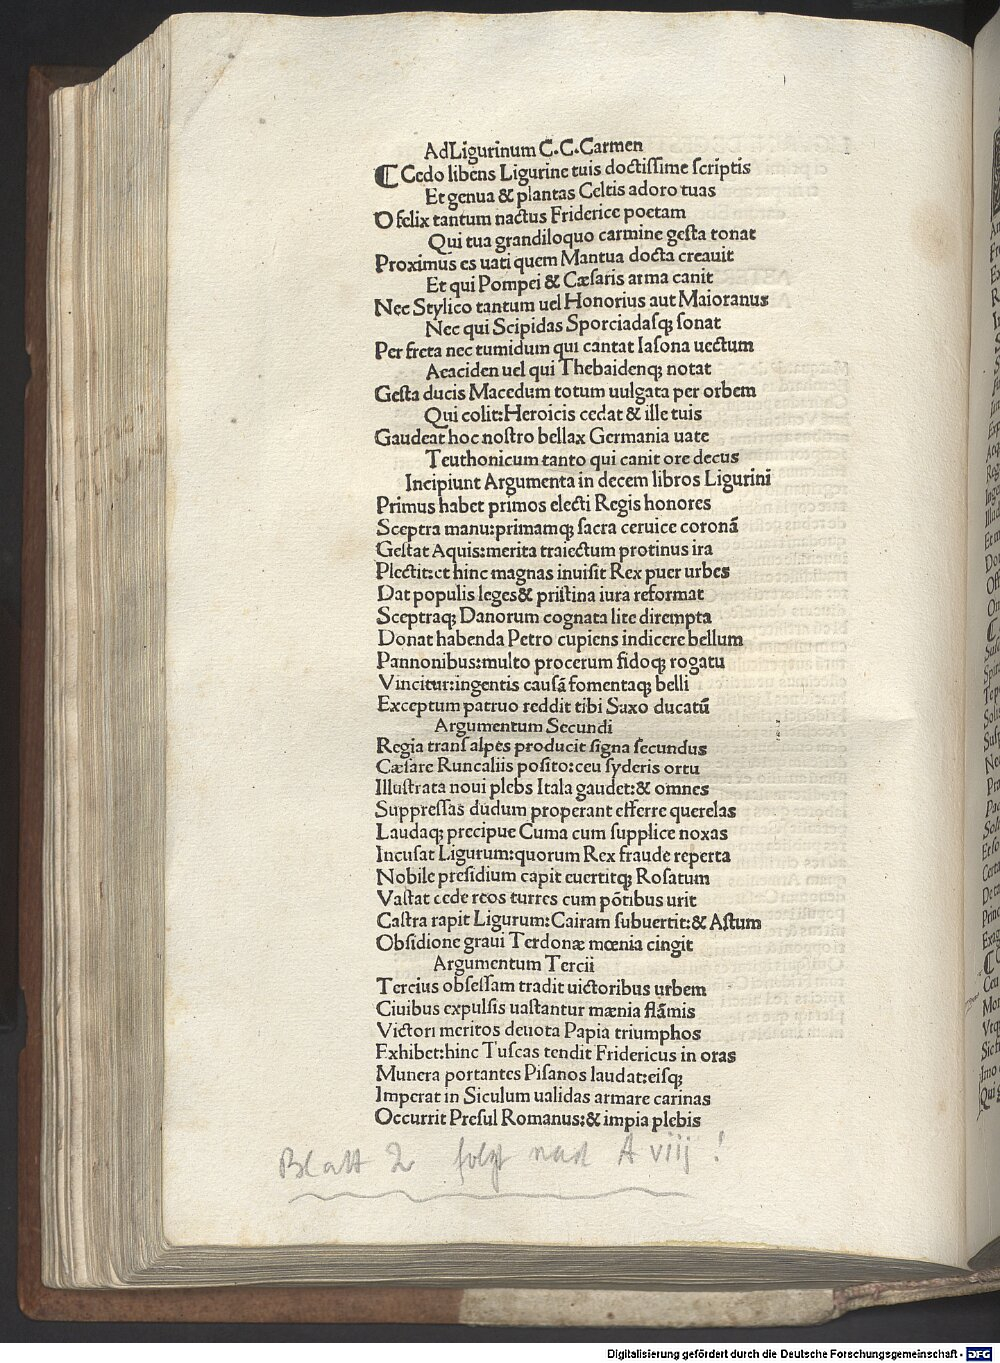 Ad Ligurinum C.C.Carmen
¶ Cedo libens Ligurine tuis doctissime scriptis
Et genua & plantas Celtis adoro tuas
O felix tantum nactus Friderice poetam
Qui tua grandiloquo carmine gesta tonat
Proximus es uati quem Mantua docta creauit
Et qui Pompei & Cæsaris arma canit
Nec Stylico tantum uel Honorius aut Maioranus
Nec qui Scipidas Sporciadasqꝫ sonat
Per freta nec tumidum qui cantat Iasona uectum
Aeaciden uel qui Thebaidenqꝫ notat
Gesta ducis Macedum totum uulgata per orbem
Qui colit:Heroicis cedat & ille tuis
Gaudeat hoc nostro bellax Germania uate
Teuthonicum tanto qui canit ore decus
Incipiunt Argumenta in decem libros Ligurini
Primus habet primos electi Regis honores
Sceptra manu:primamqꝫ sacra ceruice coronā
Gestat Aquis:merita traiectum protinus ira
Plectit:et hinc magnas inuisit Rex puer urbes
Dat populis leges& pristina iura reformat
Sceptraqꝫ Danorum cognata lite dirempta
Donat habenda Petro cupiens indicere bellum
Pannonibus:multo procerum fidoqꝫ rogatu
Vincitur:ingentis causā fomentaqꝫ belli
Exceptum patruo reddit tibi Saxo ducatū
Argumentum Secundi
Regia trans alpes producit signa secundus
Cæsare Runcaliis posito:ceu syderis ortu
Illustrata noui plebs Itala gaudet:& omnes
Suppressas dudum properant efferre querelas
Laudaqꝫ precipue Cuma cum supplice noxas
Incusat Ligurum:quorum Rex fraude reperta
Nobile presidium capit euertitqꝫ Rosatum
Vastat cede reos turres cum pōtibus urit
Castra rapit Ligurum:Cairam subuertit:& Astum
Obsidione graui Terdonæ mœnia cingit
Argumentum Tercii
Tercius obsessam tradit uictoribus urbem
Ciuibus expulsis uastantur mænia flāmis
Victori meritos deuota Papia triumphos
Exhibet:hinc Tuscas tendit Fridericus in oras
Munera portantes Pisanos laudat:eisqꝫ
Imperat in Siculum ualidas armare carinas
Occurrit Presul Romanus:& impia plebis
Blatt 2 folgt nach A viij !
Digitalisierung gefördert durch die Deutsche Forschungsgemeinschaft - DFG